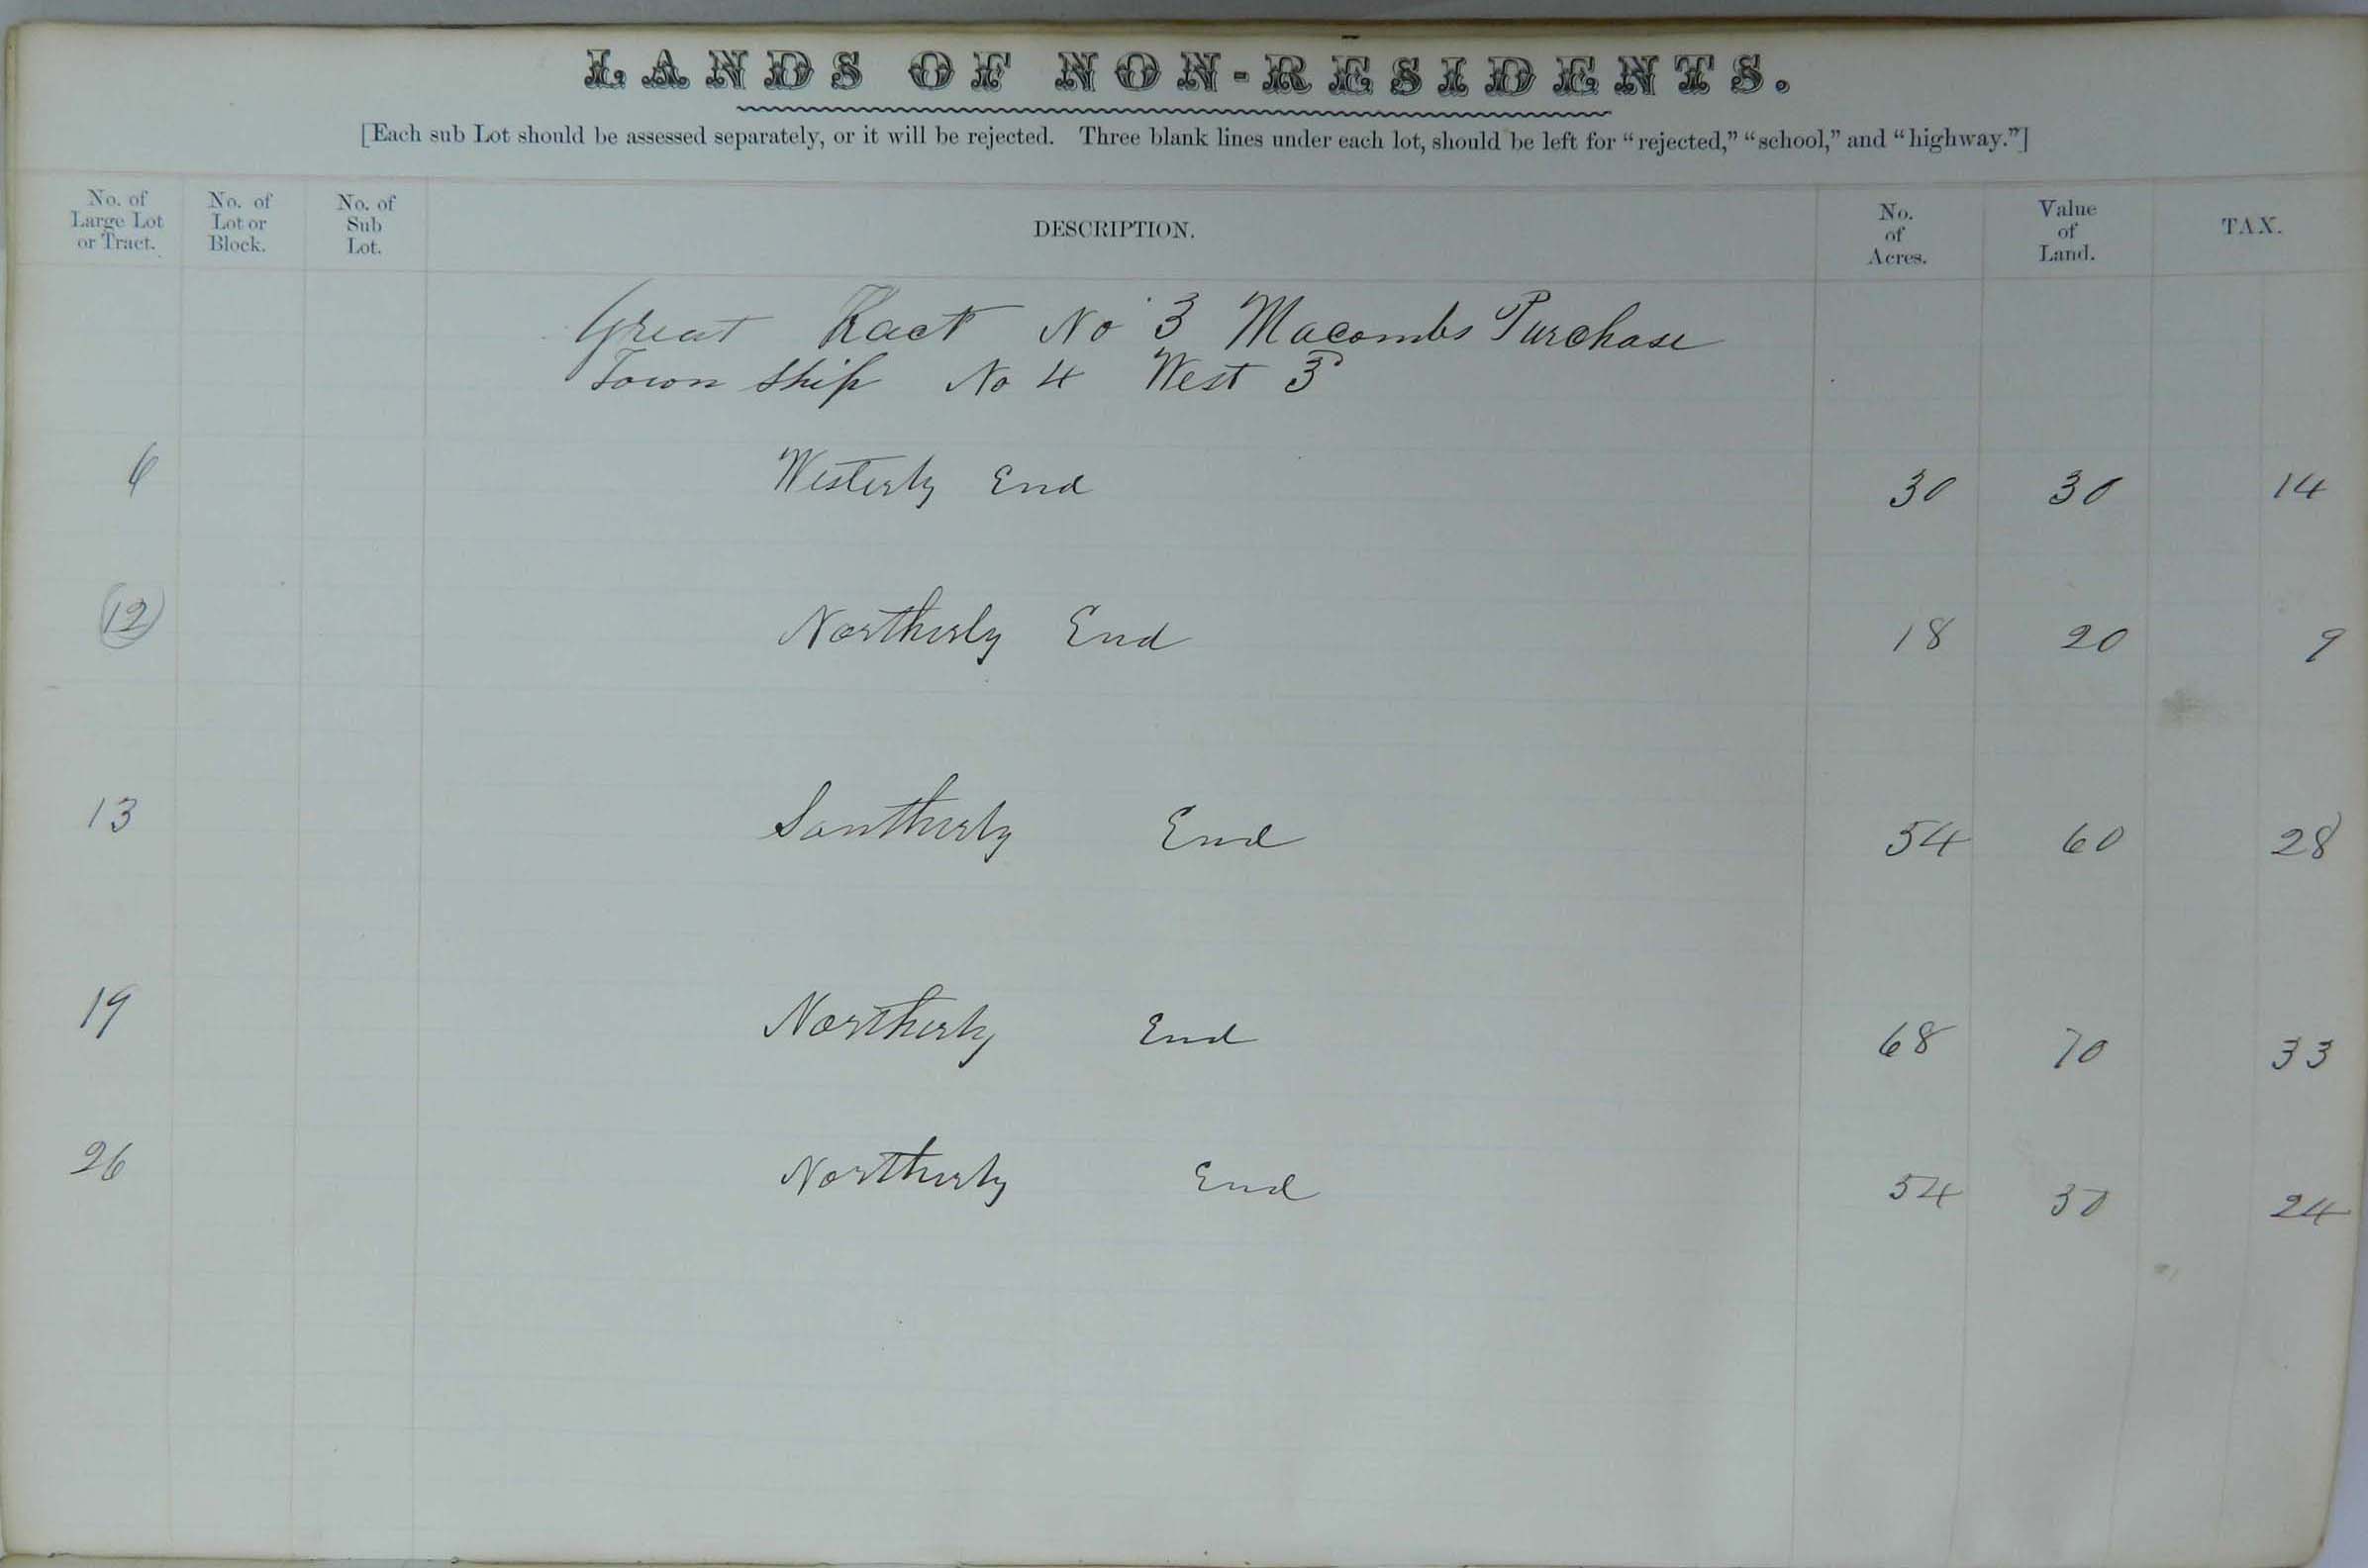 LANDS OF NON-RESIDENTS.
[Each sub Lot should be assessed separately, or it will be rejected. Three blank lines under each lot, should be left for "rejected," "school," and "highway."]
No. of Large Lot or Tract. No. of Lot or Block. No. of Sub Lot. DESCRIPTION. No. of Acres. Value of Land. TAX.
Great Tract No 3 Macombs Purchase
Town Ship No 4 West 3
6 Westerly End 30 30 14
12 Northerly End 18 20 9
13 Southerly End 54 60 28
19 Northerly End 68 70 33
26 Northerly End 54 50 24